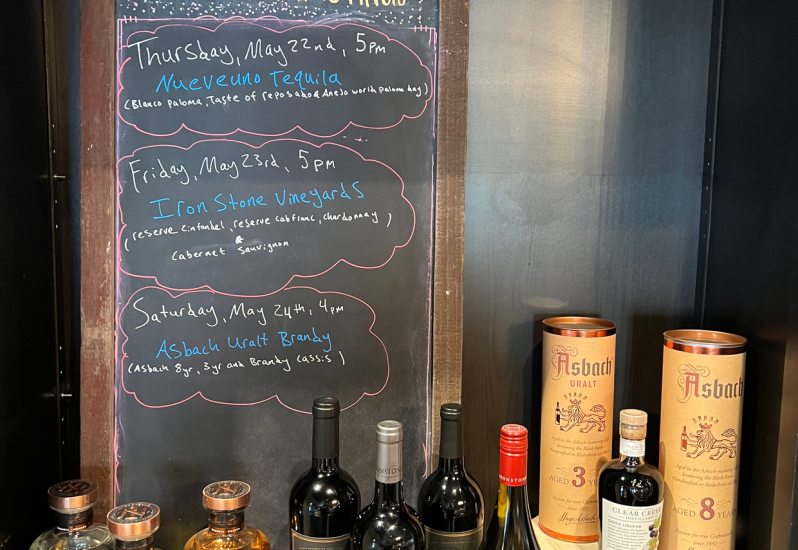 Thursday, May 22nd, 5pm
Nueveuno Tequila
(Blanco paloma, Taste of reposado & Anejo world paloma day)
Friday, May 23rd, 5pm
Iron Stone Vineyards
(reserve zinfandel, reserve cab franc, chardonnay)
&
Cabernet Sauvignon
Saturday, May 24th, 4pm
Asbach Uralt Brandy
(Asbach 8yr, 3yr and Brandy Cassis)
Asbach
URALT
AGED 3 YE
Asbach
AGED 8 YEA
CLEAR CREEK
DISTILLERY